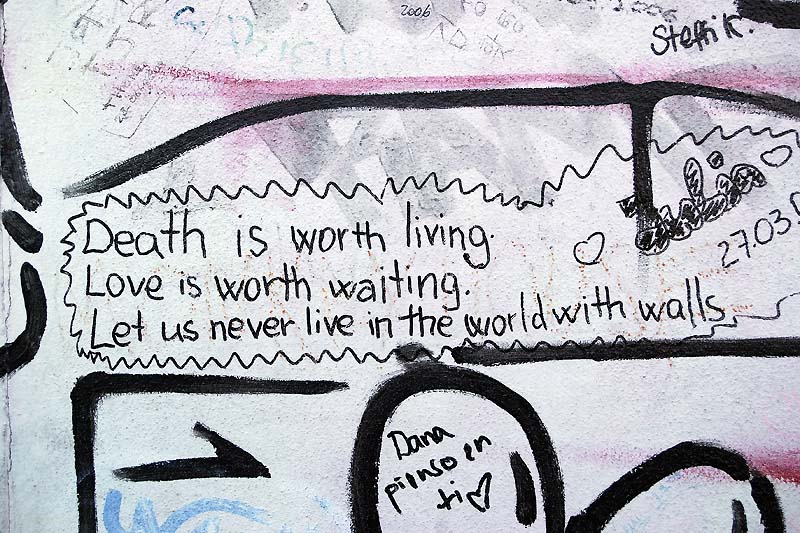 2006
Steffi K.
Death is worth living.
Love is worth waiting.
Let us never live in the world with walls
27.03
Dana
pienso en
ti